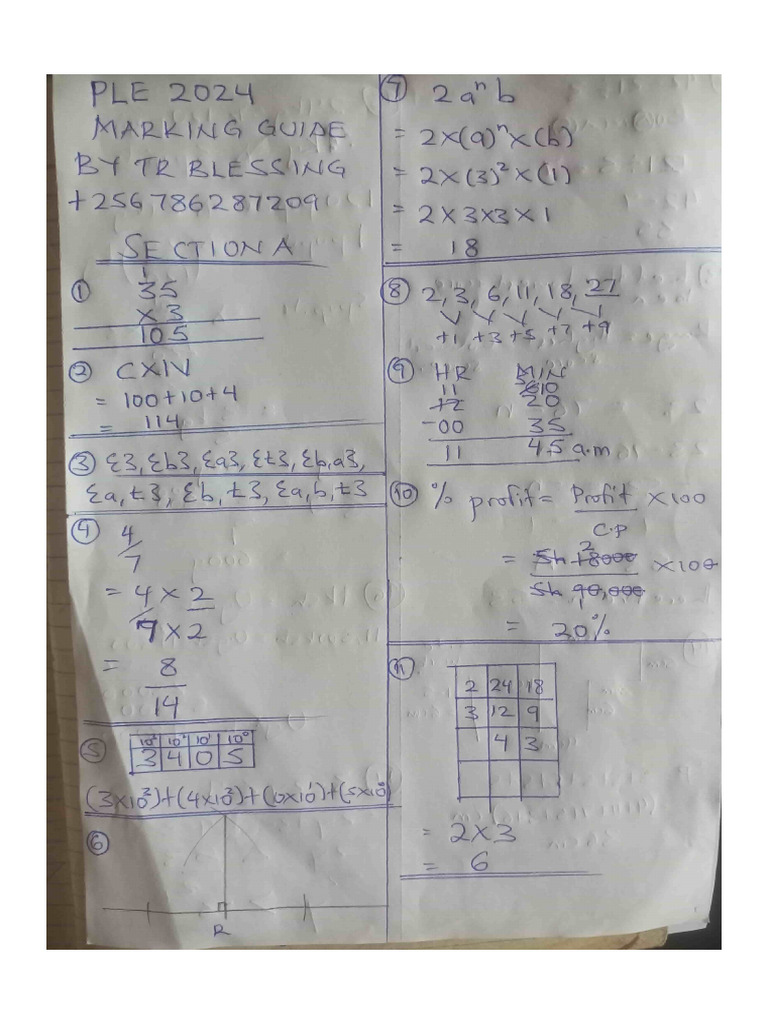 PLE 2024
MARKING GUIDE
BY TR BLESSING
+256786287209
SECTION A
① 35
× 3
105
② CXIV
= 100+10+4
= 114
③ {}, {b}, {a}, {t}, {b,a},
{a,t}, {b,t}, {a,b,t}
④ 4/7
= 4 × 2
7 × 2
= 8
14
⑤ 10³ 10² 10¹ 10⁰
3 4 0 5
(3×10³)+(4×10²)+(0×10¹)+(5×10⁰)
⑥
R
⑦ 2aⁿb
= 2×(a)ⁿ×(b)
= 2×(3)²×(1)
= 2×3×3×1
= 18
⑧ 2, 3, 6, 11, 18, 27
+1, +3, +5, +7, +9
⑨ HR MIN
11
12 20
-00 35
11 45 a.m
⑩ % profit = Profit × 100
C.P
2
= Sh 18000 × 100
Sh 90,000
1
= 20%
⑪
2 24 18
3 12 9
4 3
= 2×3
= 6